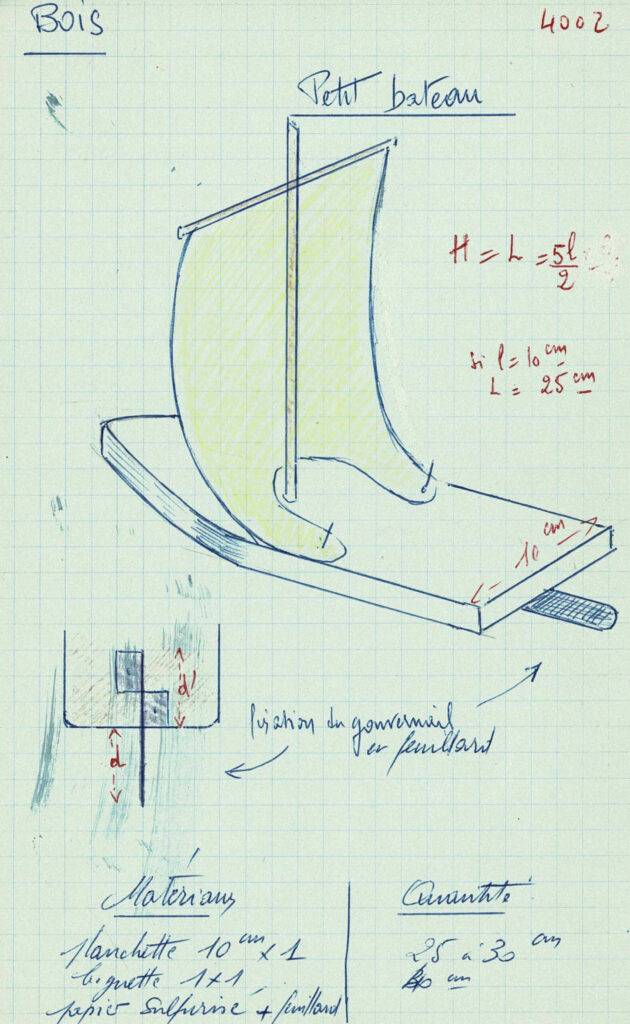 BOIS
4002
Petit bateau
H = L = 5l/2
si l = 10 cm
L = 25 cm
10 cm
d'
d
fixation du gouvernail
en feuillard
Matériaux
Quantité
planchette 10 cm x 1
25 à 30 cm
baguette 1x1
cm
papier sulfurisé + feuillard